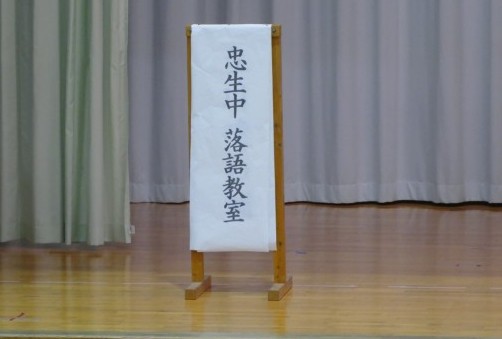 忠生中 落語教室